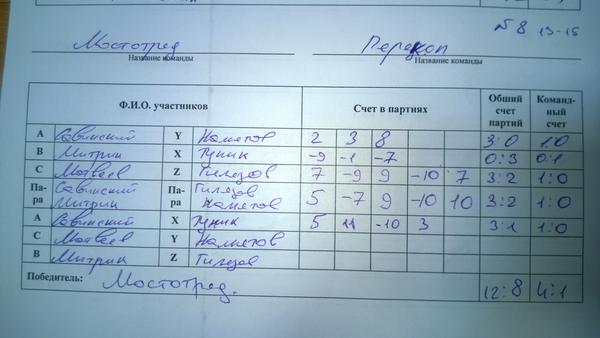 №8 13-15
Мостотряд Перекоп
Название команды Название команды
Ф.И.О. участников Счет в партиях Общий счет партий Команд-ный счет
А Савинский Y Наметов 2 3 8 3:0 1:0
В Митрин X Туник -9 -1 -7 0:3 0:1
С Матвеев Z Гилязов 7 -9 9 -10 7 3:2 1:0
Па-ра Савинский Митрин Па-ра Гилязов Наметов 5 -7 9 -10 10 3:2 1:0
А Савинский X Туник 5 11 -10 3 3:1 1:0
С Матвеев Y Наметов
В Митрин Z Гилязов
Победитель: Мостотряд. 12:8 4:1